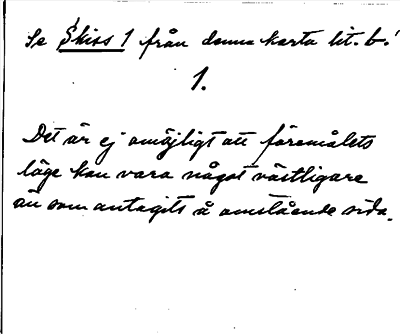 Se Skiss 1 från denna karta lit. b.!
1.
Det är ej omöjligt att föremålets
läge kan vara något västligare
än som antagits å omstående sida.